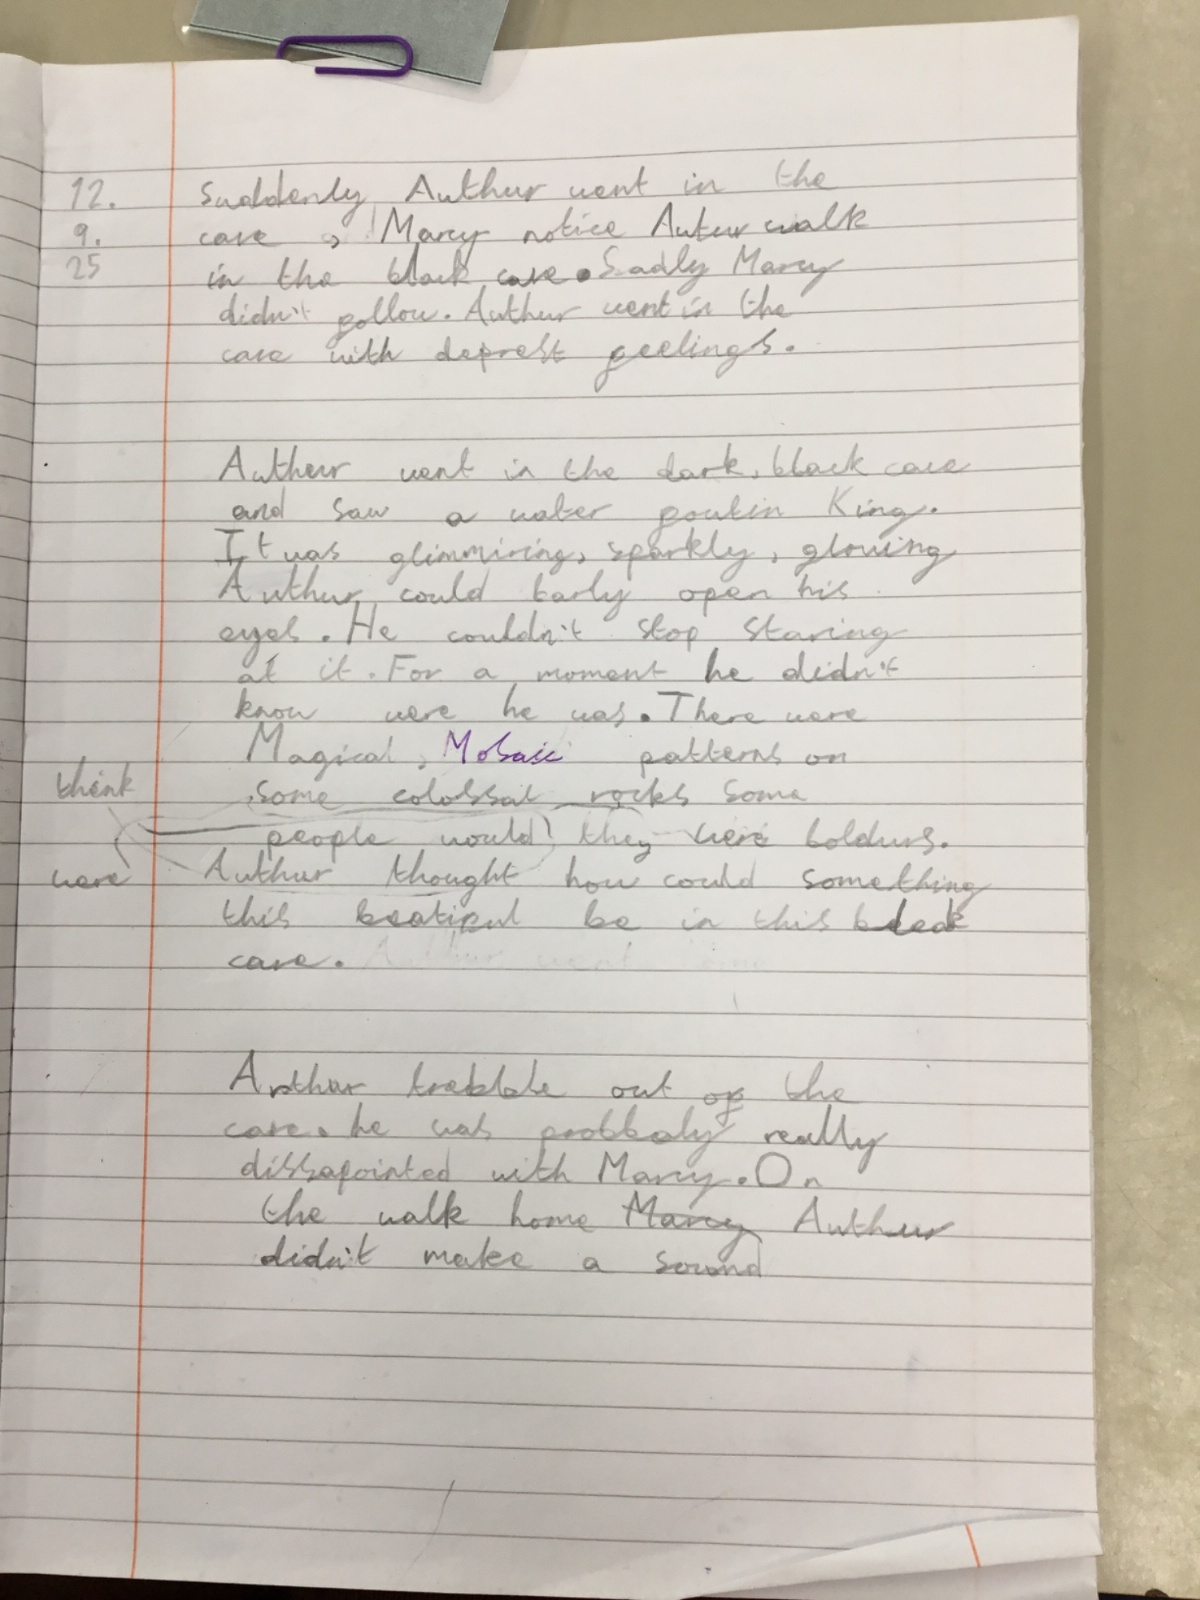 12. Suddenly Authur went in the
9. cave , Marcy notice Autur walk
25 in the black cave. Sadly Marcy
didn't follow. Authur went in the
cave with deprest feelings.
Autheur went in the dark, black cave
and saw a water King.
It was glimmiring, sparkly, glowing
Authur could barly open his
eyes. He couldn't stop staring
at it. For a moment he didn't
know were he was. There were
Magical, Mosaic patterns on
think some colossal rocks some
people would they were boldurs.
were Authur thought how could something
this beatiful be in this bleak
cave.
Arthur out of the
cave. he was probbaly really
dissapointed with Marcy. On
the walk home Marcy Authur
didn't make a sound